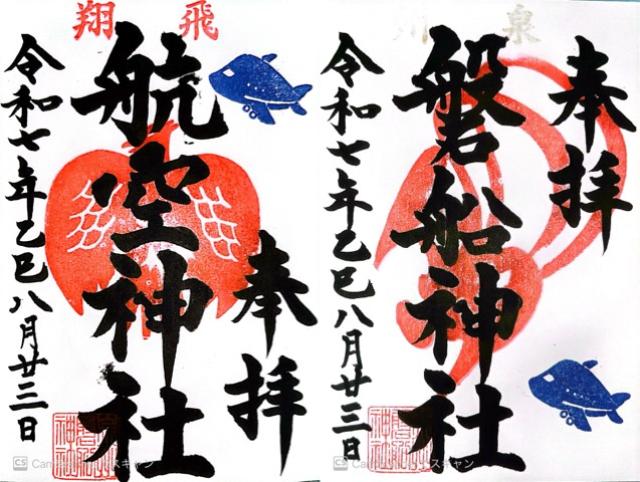 飛翔
奉拝
航空神社
令和七年乙巳八月廿三日
奉拝
磐船神社
令和七年乙巳八月廿三日